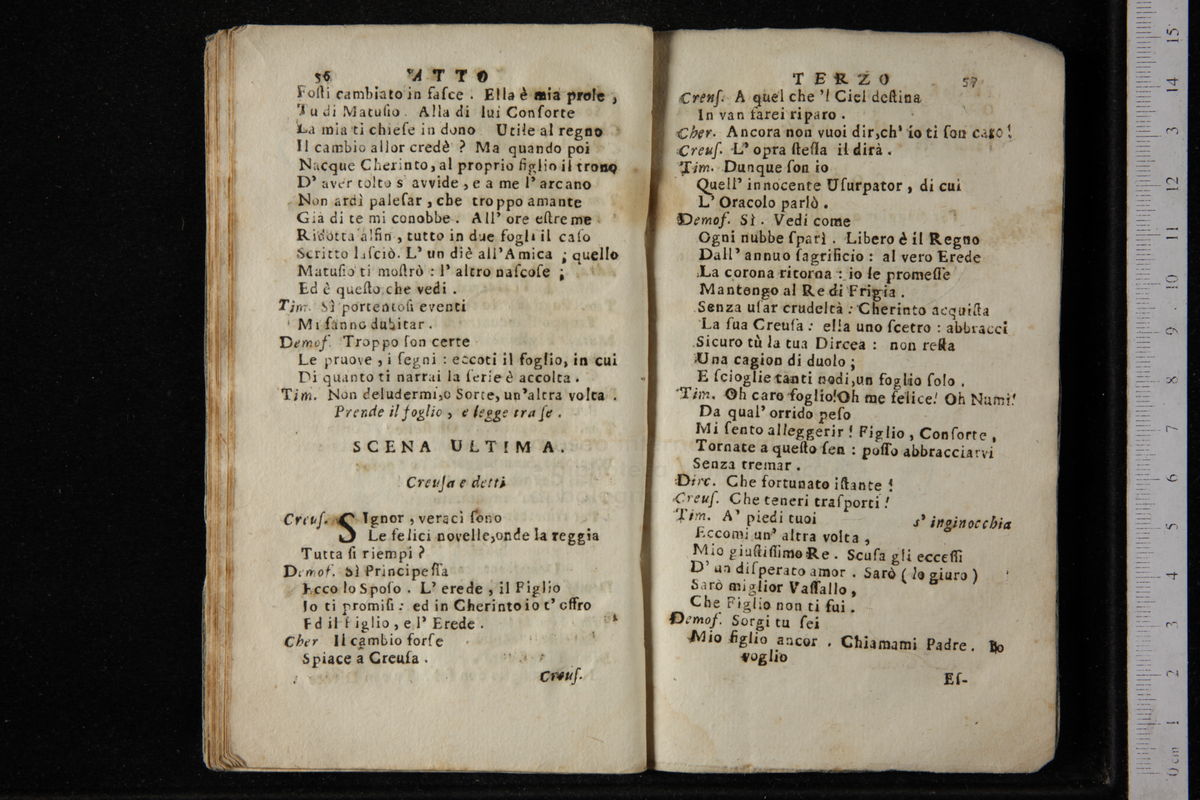 56 ATTO
Foſti cambiato in faſce . Ella è mia prole ,
Tu di Matuſio . Alla di lui Conſorte
La mia ti chieſe in dono Utile al regno
Il cambio allor credè ? Ma quando poi
Nacque Cherinto, al proprio figlio il trono
D' aver tolto s' avvide , e a me l' arcano
Non ardì paleſar , che troppo amante
Gia di te mi conobbe . All' ore eſtreme
Ridotta alfin , tutto in due fogli il caſo
Scritto laſciò. L' un diè all'Amica ; quello
Matuſio ti moſtrò : l' altro naſcoſe ;
Ed è queſto che vedi .
Tim. Sì portentoſi eventi
Mi fanno dubitar .
Demof. Troppo ſon certe
Le pruove , i ſegni : eccoti il foglio, in cui
Di quanto ti narrai la ſerie è accolta .
Tim. Non deludermi,o Sorte, un'altra volta .
Prende il foglio , e legge tra ſe .
SCENA ULTIMA.
Creuſa e detti
Creuſ. SIgnor , veraci ſono
Le felici novelle,onde la reggia
Tutta ſi riempì ?
Demof. Sì Principeſſa
Ecco lo Spoſo . L' erede , il Figlio
Io ti promiſi : ed in Cherinto io t' offro
Ed il Figlio , e l' Erede .
Cher Il cambio forſe
Spiace a Creuſa .
Creuſ.
TERZO 57
Creuſ. A quel che 'l Ciel deſtina
In van farei riparo .
Cher. Ancora non vuoi dir,ch' io ti ſon caro !
Creuſ. L' opra ſteſſa il dirà .
Tim. Dunque ſon io
Quell' innocente Uſurpator , di cui
L' Oracolo parlò .
Demof. Sì . Vedi come
Ogni nubbe ſparì . Libero è il Regno
Dall' annuo ſagrificio : al vero Erede
La corona ritorna : io le promeſſe
Mantengo al Re di Frigia .
Senza uſar crudeltà : Cherinto acquiſta
La ſua Creuſa : ella uno ſcetro : abbracci
Sicuro tù la tua Dircea : non reſta
Una cagion di duolo ;
E ſcioglie tanti nodi,un foglio ſolo .
Tim. Oh caro foglio!Oh me felice! Oh Numi!
Da qual' orrido peſo
Mi ſento alleggerir ! Figlio , Conſorte ,
Tornate a queſto ſen : poſſo abbracciarvi
Senza tremar .
Dirc. Che fortunato iſtante !
Creuſ. Che teneri traſporti !
Tim. A' piedi tuoi s' inginocchia
Eccomi un' altra volta ,
Mio giuſtiſſimo Re . Scuſa gli ecceſſi
D' un diſperato amor . Sarò ( lo giuro )
Sarò miglior Vaſſallo ,
Che Figlio non ti fui .
Demof. Sorgi tu ſei
Mio figlio ancor . Chiamami Padre . Io
voglio
Eſ-
0 cm 1 2 3 4 5 6 7 8 9 10 11 12 13 14 15